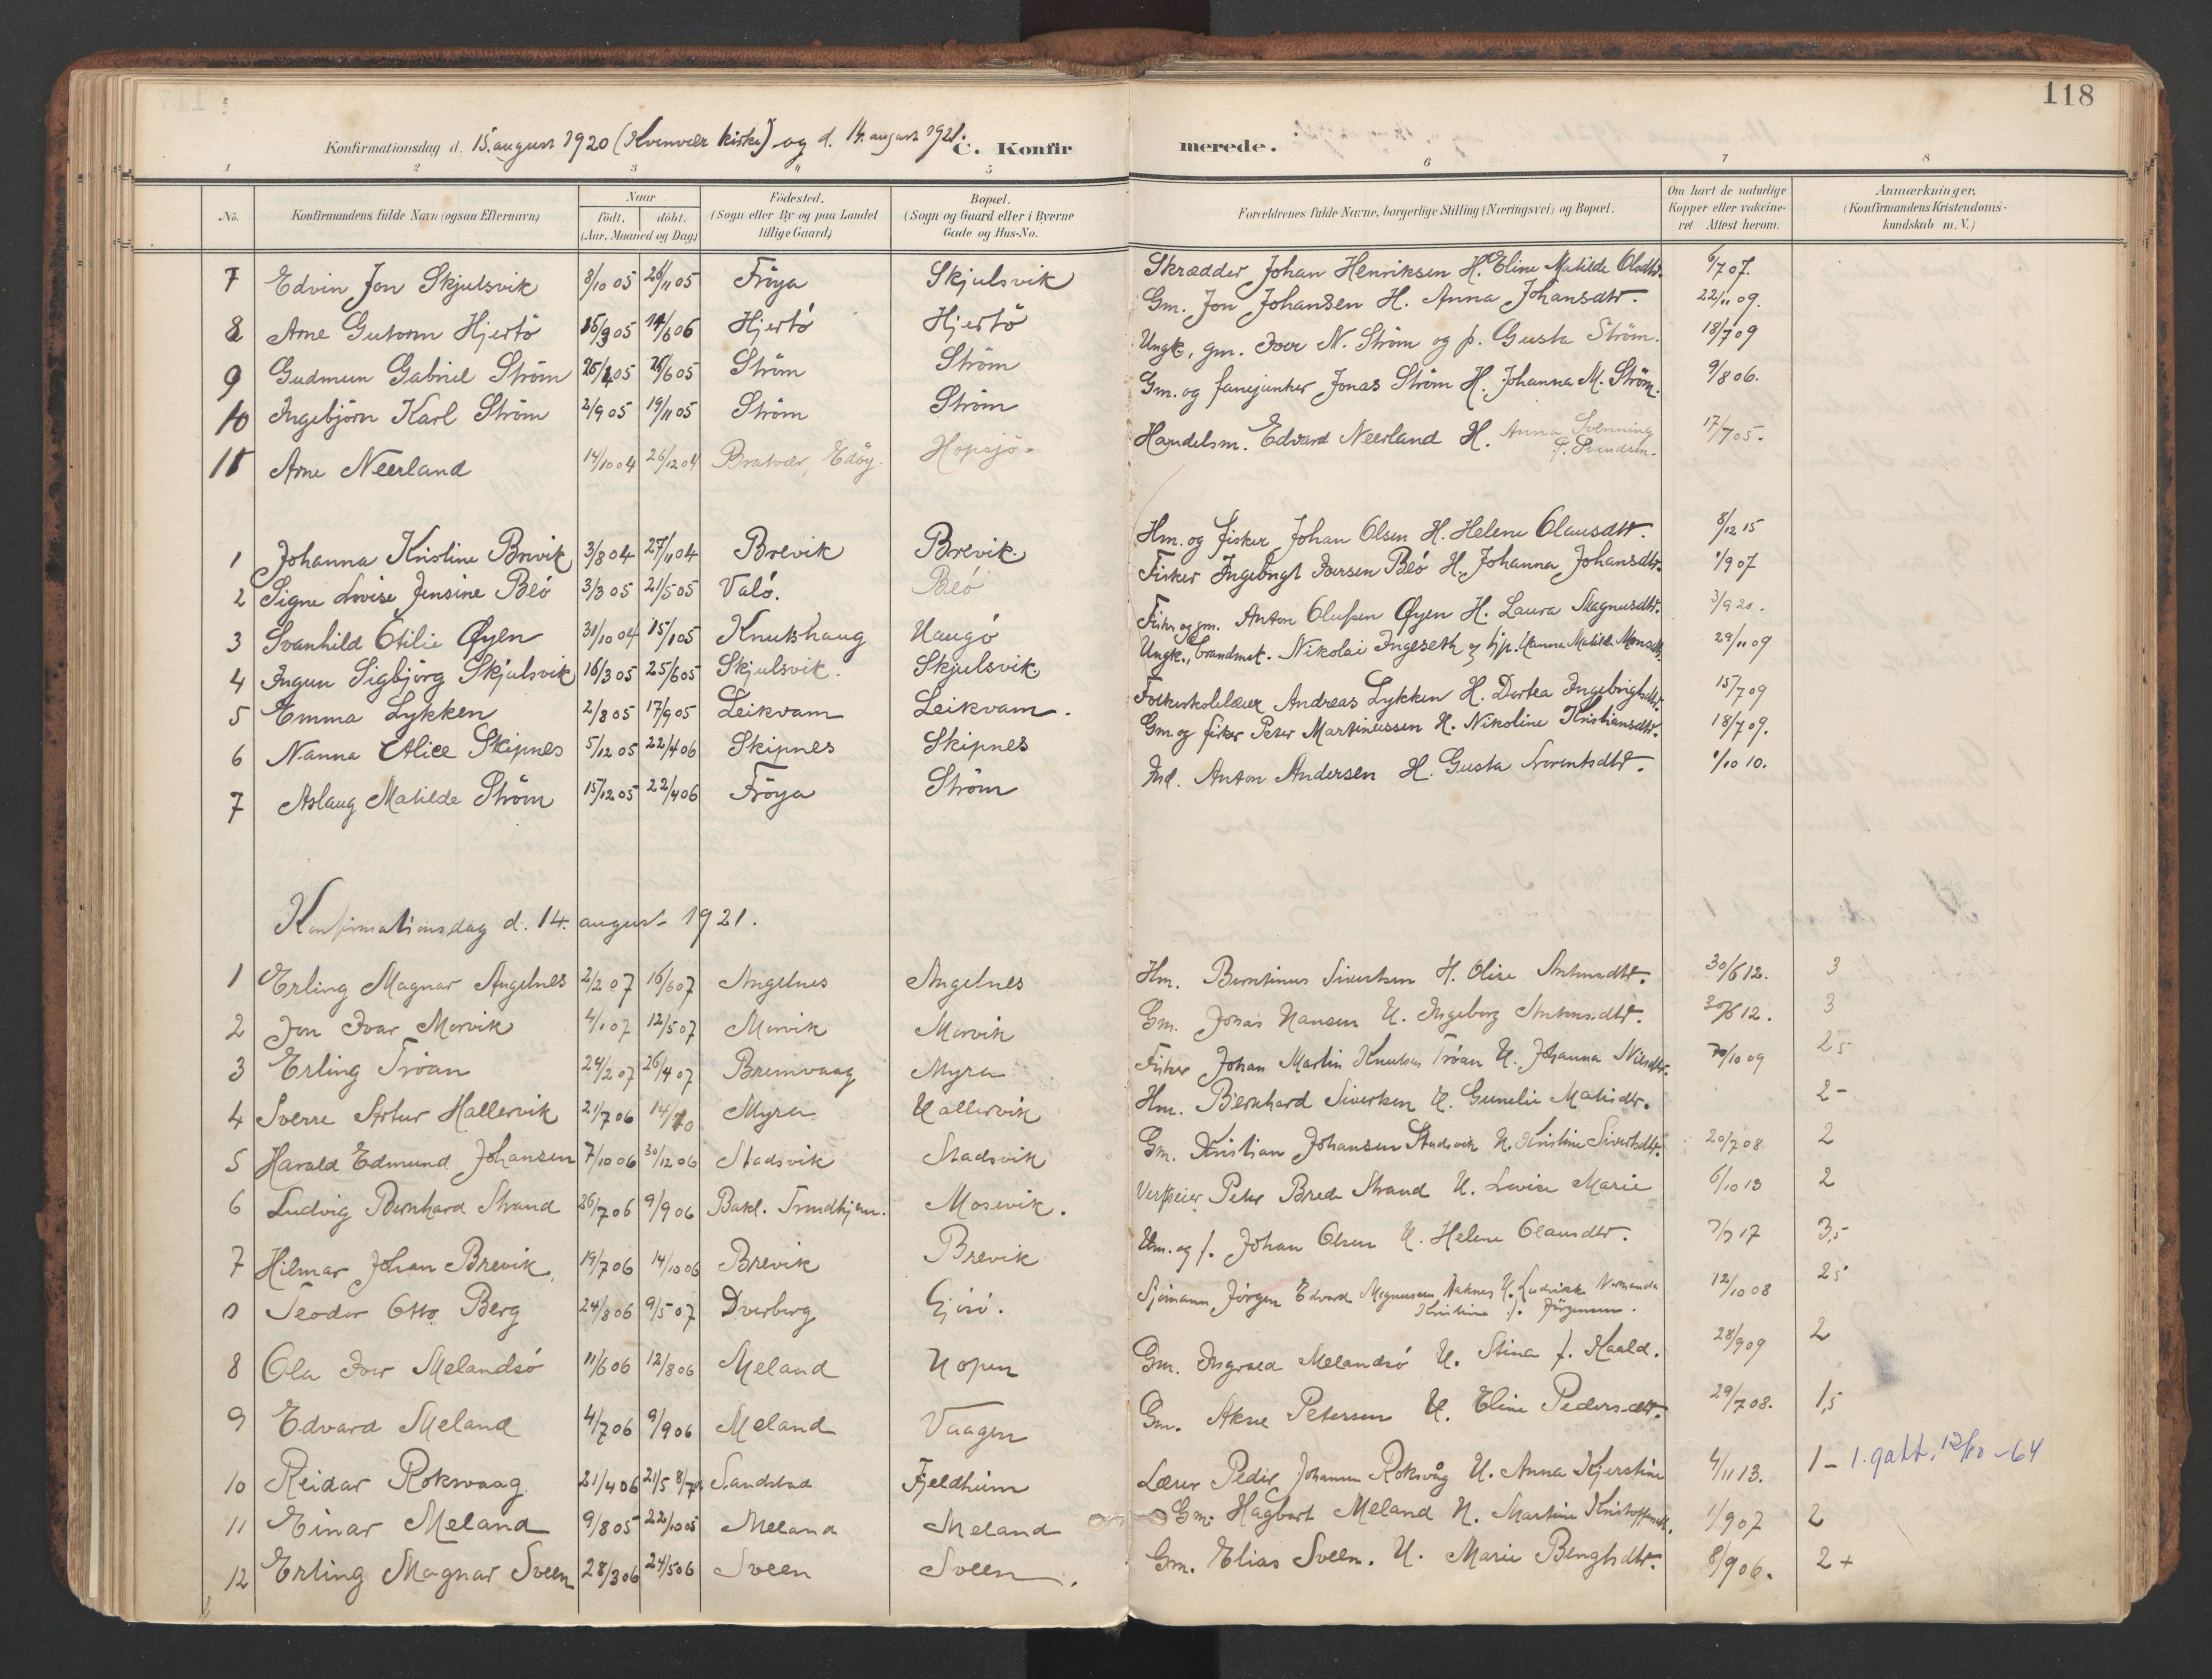 118
Konfirmationsdag d. 15. august 1920 (Kvenvær kirke) og d. 14. august 1921. C. Konfirmerede.
1 2 3 4 5 6 7 8
No. Konfirmandens fulde Navn (ogsaa Efternavn) Naar født. døbt. (Aar, Maaned og Dag) Fødested. (Sogn eller By og paa Landet tillige Gaard) Bopæl. (Sogn og Gaard eller i Byerne Gade og Hus-No. Forældrenes fulde Navne, borgerlige Stilling (Næringsvei) og Bopæl. Om havt de naturlige Kopper eller vakcineret Attest herom. Anmærkninger. (Konfirmandens Kristendomskundskab m. V.)
7 Edvin Jon Skjulsvik 8/10 05 26/11 05 Fröya Skjulsvik Skrædder Johan Henriksen H. Eline Matilde Olsdtr. 6/7 07.
8 Arne Gutorm Hjertö 15/3 05 14/6 06 Hjertö Hjertö Gm. Jon Johansen H. Anna Johansdtr. 22/11 09.
9 Gudmun Gabriel Ström 25/1 05 26/6 05 Ström Ström Ungk. gm. Iver N. Ström og p. Gusta Ström. 18/7 09
10 Ingebjörn Karl Ström 2/9 05 19/11 05 Ström Ström Gm. og fanejunker Jonas Ström H. Johanna M. Ström. 9/8 06.
11 Arne Neerland 14/10 04 26/12 04 Bratvær, Edöy. Hopsjö. Handelsm. Edvard Neerland H. Anna Svenning f. Svendsen. 17/7 05.
1 Johanna Kristine Brevik 3/8 04 27/11 04 Brevik Brevik. Hm. og fisker Johan Olsen H. Helene Olausdtr. 8/12 15
2 Signe Lovise Jensine Beö 3/3 05 21/5 05 Valö. Beö Fisker Ingebrigt Iversen Beö H. Johanna Johansdtr. 1/9 07
3 Svanhild Otilie Øyen 31/10 04 15/1 05 Knutshaug Haugö Fisker og gm. Anton Olufsen Øyen H. Laura Magnusdtr. 3/9 20.
4 Ingun Sigbjörg Skjulsvik 16/3 05 25/6 05 Skjulsvik. Skjulsvik. Ungk., brandmet. Nikolai Ingeseth og tjp. Hanna Matilde Monsdtr. 29/11 09
5 Emma Lykken 2/8 05 17/9 05 Leikvam Leikvam. Folkeskolelærer Andreas Lykken H. Dortea Ingebrigtsdtr. 15/7 09
6 Nanna Alice Skipnes 5/12 05 22/4 06 Skipnes Skipnes Gm. og fisker Peter Martinussen H. Nikoline Kristiansdtr. 18/7 09.
7 Aslaug Matilde Ström 15/12 05 22/4 06 Fröya Ström Ind. Anton Andersen H. Gusta Lorentsdtr. 1/10 10.
Konfirmationsdag d. 14. august 1921.
1 Erling Magnar Angelnes 2/2 07 16/6 07 Angelnes Angelnes Hm. Berntinus Sivertsen H. Olise Antonsdtr. 30/6 12. 3
2 Jon Ivar Morvik 4/1 07 12/5 07 Morvik Morvik Gm. Jonas Hansen H. Ingeborg Antonsdtr. 30/6 12. 3
3 Erling Tröan 24/2 07 26/4 07 Bremvaag Myra Fisker Johan Martin Knutsen Tröan H. Johanna Nilsdtr. /10 09 25
4 Sverre Artur Hallervik 21/7 06 Myra Hallervik Hm. Bernhard Sivertsen H. Gunelie Matisdtr. 2-
5 Harald Edmund Johansen 7/10 06 30/12 06 Stadsvik Stadsvik Gm. Kristian Johansen Stadsvik H. Kristine Sivertsdtr. 20/7 08 2
6 Ludvig Bernhard Strand 26/7 06 9/9 06 Bakl. Trondhjem. Mosevik. Verkseier Peter Brede Strand H. Lovise Marie 6/10 13 2
7 Hilmar Johan Brevik 19/7 06 14/10 06 Brevik Brevik Hm. og f. Johan Olsen H. Helene Olausdtr. 7/7 17 3,-
0 Teodor Otto Berg 24/8 06 9/5 07 Dverberg Gjisö. Sjömann Jörgen Edvard Magnussen H. Ludvikke Normanda Kristine f. Jörgensen. 12/10 08 25
8 Ola Iver Melandsö 11/6 06 12/8 06 Meland Hopen Gm. Ingvald Melandsö H. Stina f. Kaald. 28/9 09 2
9 Edvard Meland 4/7 06 9/9 06 Meland Vaagen Gm. Aksel Petersen H. Eline Pedersdtr. 29/7 08. 1,5
10 Reidar Rokvaag 21/4 06 21/5 Sandstad Fjeldheim Lærer Peder Johannes Rokvåg H. Anna Kjerstine 4/11 13. 1- 1. gatt. 12/10 -64
11 Einar Meland 9/8 05 22/10 05 Meland Meland Gm. Hagbart Meland H. Martine Kristoffersdtr. 1/9 07 2
12 Erling Magnar Sveen 28/3 06 24/5 06 Sveen Sveen. Gm. Elias Sveen. H. Marie Bengtsdtr. 8/9 06. 2+